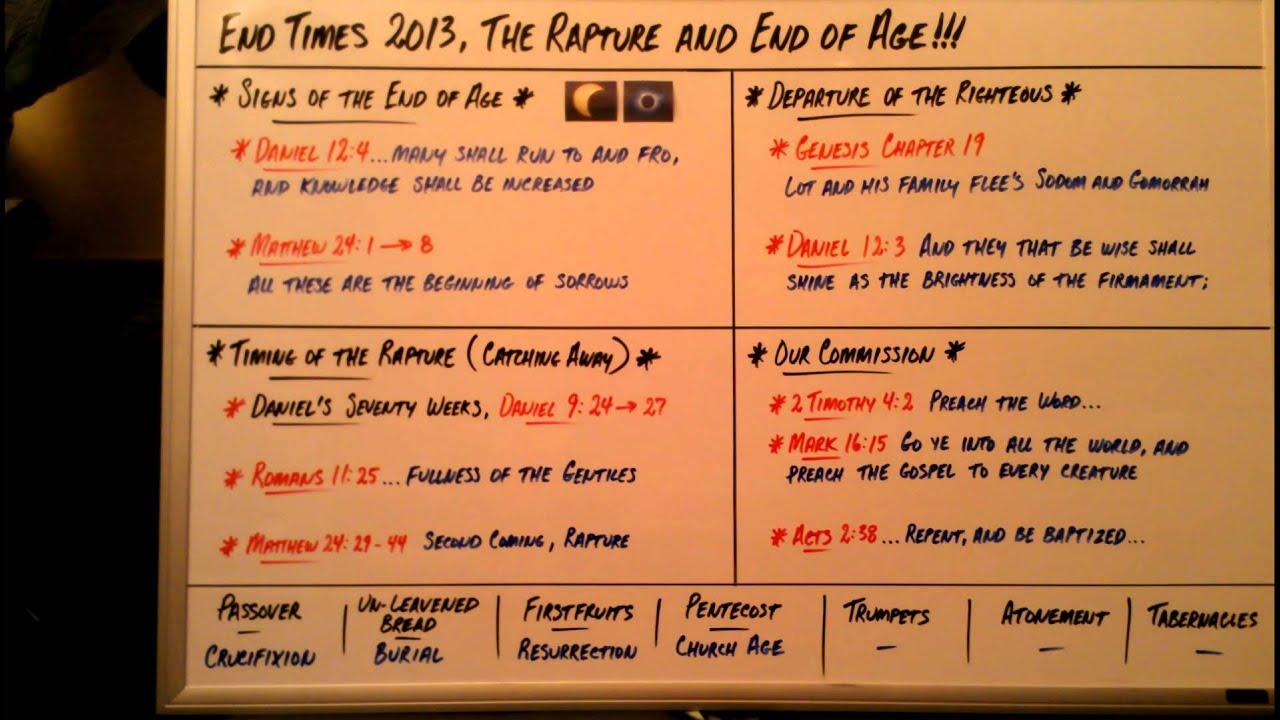 END TIMES 2013, THE RAPTURE AND END OF AGE!!!
* SIGNS OF THE END OF AGE *
* DANIEL 12:4...MANY SHALL RUN TO AND FRO,
AND KNOWLEDGE SHALL BE INCREASED
* MATTHEW 24:1 → 8
ALL THESE ARE THE BEGINNING OF SORROWS
* DEPARTURE OF THE RIGHTEOUS *
* GENESIS CHAPTER 19
LOT AND HIS FAMILY FLEE'S SODOM AND GOMORRAH
* DANIEL 12:3 AND THEY THAT BE WISE SHALL
SHINE AS THE BRIGHTNESS OF THE FIRMAMENT;
* TIMING OF THE RAPTURE (CATCHING AWAY) *
* DANIEL'S SEVENTY WEEKS, DANIEL 9:24 → 27
* ROMANS 11:25...FULLNESS OF THE GENTILES
* MATTHEW 24:29-44 SECOND COMING, RAPTURE
* OUR COMMISSION *
* 2 TIMOTHY 4:2 PREACH THE WORD...
* MARK 16:15 GO YE INTO ALL THE WORLD, AND
PREACH THE GOSPEL TO EVERY CREATURE
* ACTS 2:38...REPENT, AND BE BAPTIZED...
PASSOVER
—
CRUCIFIXION
UN-LEAVENED
BREAD
—
BURIAL
FIRSTFRUITS
—
RESURRECTION
PENTECOST
—
CHURCH AGE
TRUMPETS
—
ATONEMENT
—
TABERNACLES
—